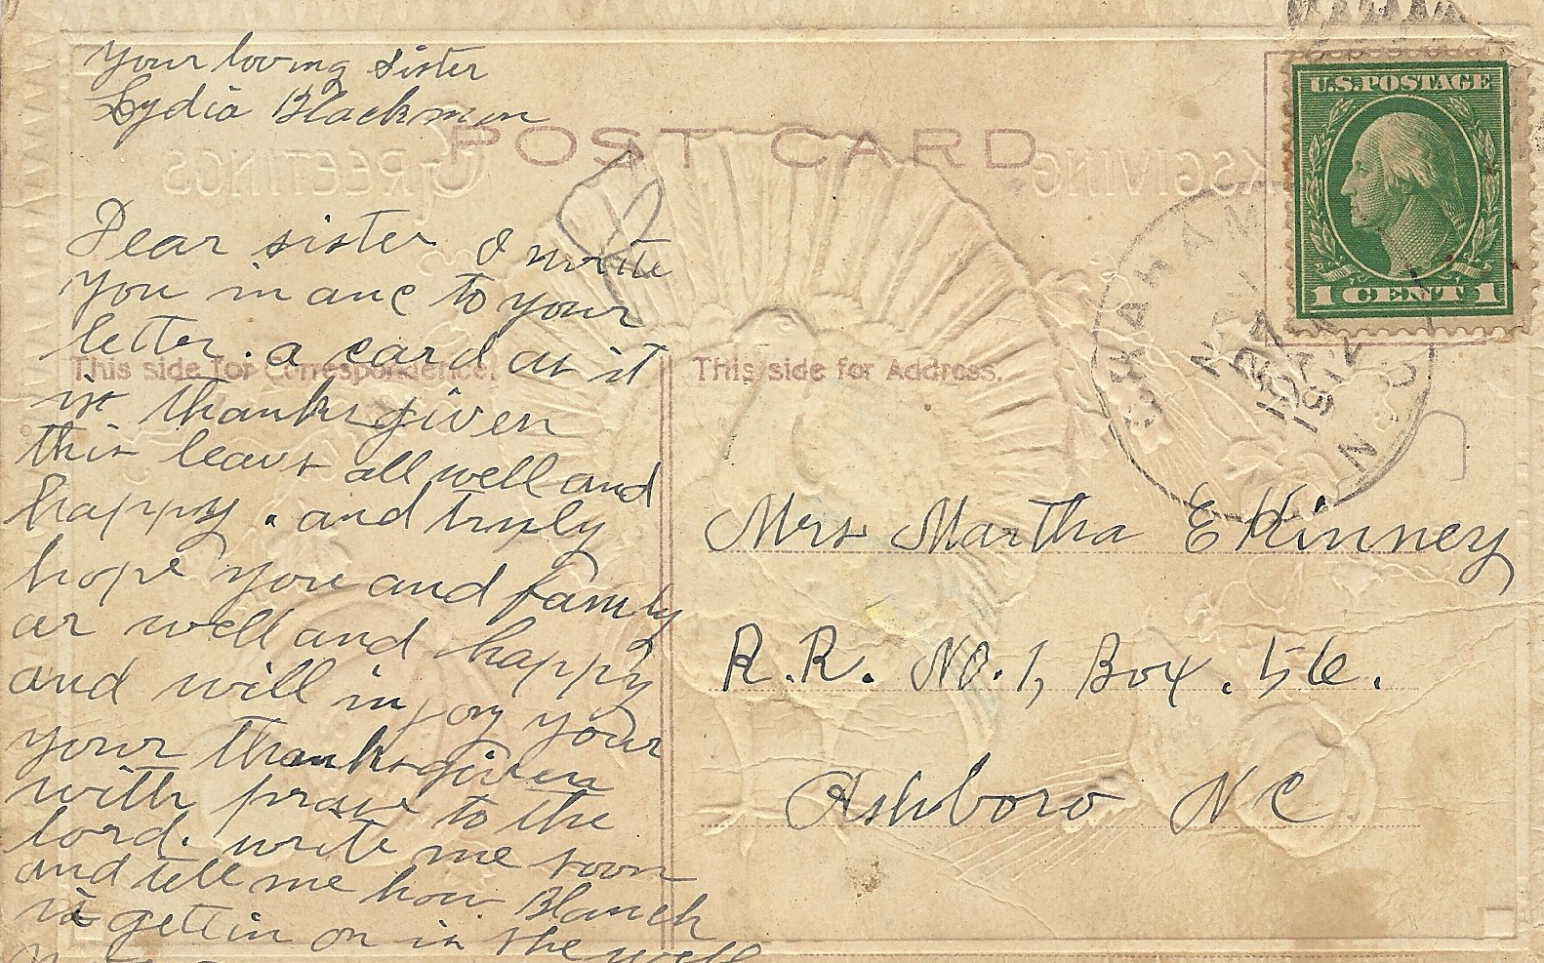 your loving sister
Lydia Blackmon
POST CARD
U.S. POSTAGE
1 CENT 1
GREETINGS
Dear sister I write
you in anc to your
letter. a card as it
is thanksgiven
This side for Correspondence.
This side for Address.
this leavs all well and
happy. and truly
hope you and family
ar well and happy
and will in joy your
your thanksgiven
with prase to the
lord. write me soon
and tell me how Blanch
is gettin on in the well
GRAHAM
NOV
27
1912
N.C.
Mrs Martha E Kinney
R.R. NO. 1, Box. 56.
Ashboro NC